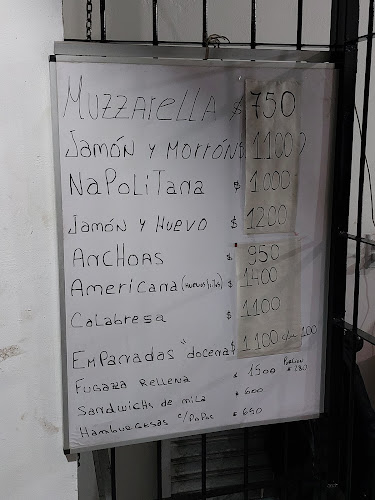 MUZZARELLA $ 750
JAMÓN Y MORRÓN $ 1100
NAPOLITANA $ 1000
JAMÓN Y HUEVO $ 1200
ANCHOAS $ 950
AMERICANA $ 1400
CALABRESA $ 1100
EMPANADAS " DOCENA $ 1100 100
FUGAZZA RELLENA $ 1500
SANDWICHS DE MILA $ 600
HAMBURGESAS C/PAPAS $ 650